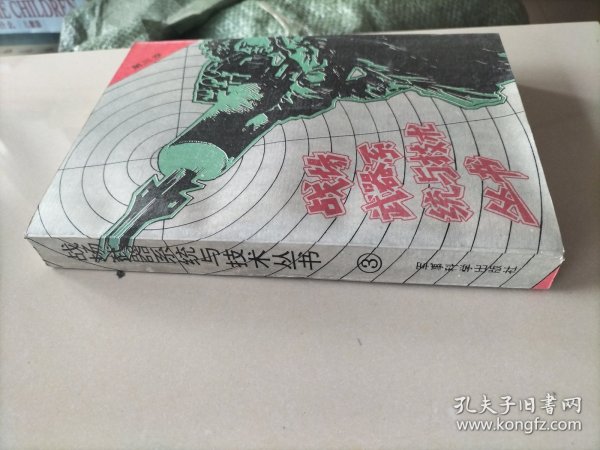 E CHILDREN
第三分
战场
武器系
统与技术
丛书
战场武器系统与技术丛书
③
军事译文出版社
孔夫子旧书网
www.kongfz.com